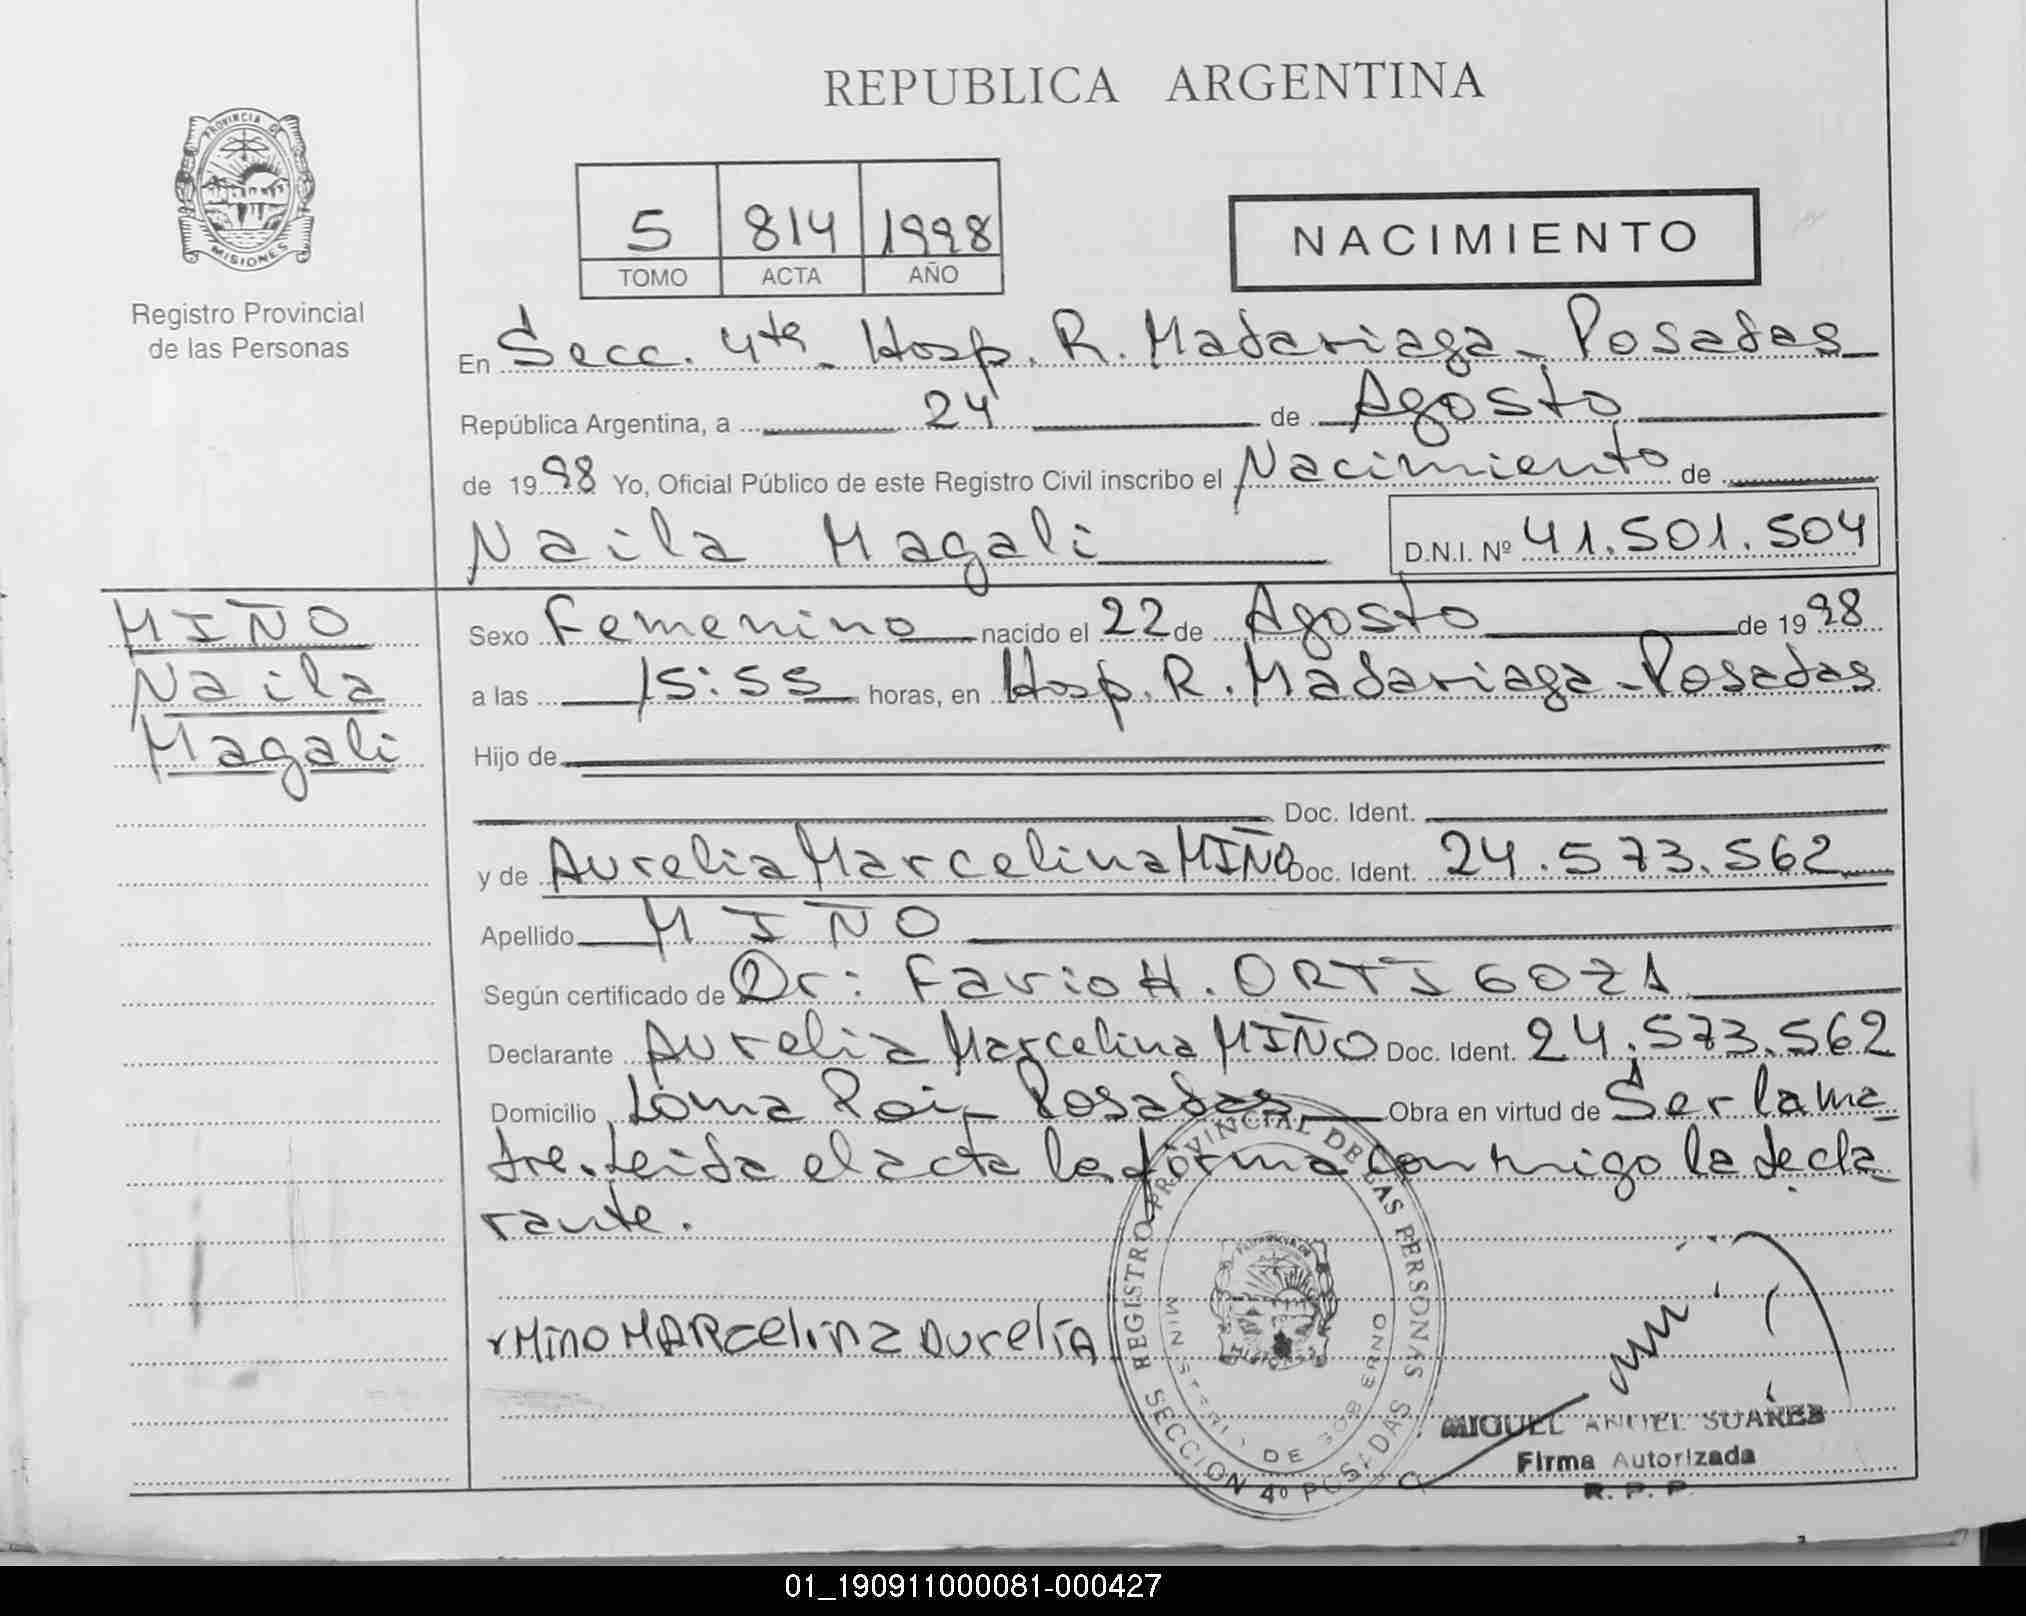 REPUBLICA ARGENTINA
PROVINCIA DE
MISIONES
Registro Provincial
de las Personas
5 814 1998
TOMO ACTA AÑO
NACIMIENTO
En Secc. 4ta Hosp. R. Madariaga - Posadas
República Argentina, a 24 de Agosto
de 1998 Yo, Oficial Público de este Registro Civil inscribo el Nacimiento de
Naila Magali D.N.I. Nº 41.501.504
MIÑO
Naila
Magali
Sexo Femenino nacido el 22 de Agosto de 1998
a las 15:55 horas, en Hosp. R. Madariaga - Posadas
Hijo de
Doc. Ident.
y de Aurelia Marcelina MIÑO Doc. Ident. 24.573.562
Apellido MIÑO
Según certificado de Dr: Favio H. ORTIGOZA
Declarante Aurelia Marcelina MIÑO Doc. Ident. 24.573.562
Domicilio Loma Poi - Posadas Obra en virtud de Ser la ma-
dre. Leida el acta la firma conmigo la decla-
rante.
Mino MARcelina Aurelia
REGISTRO PROVINCIAL DE LAS PERSONAS
MINISTERIO DE GOBIERNO
SECCION 4º POSADAS
MIGUEL ANGEL SUAREZ
Firma Autorizada
R. P. P.
01_190911000081-000427